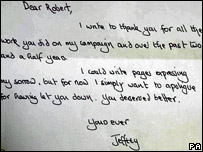 Dear Robert,
I write to thank you for all the
work you did on my campaign and over the past two
and a half years.
I could write pages expressing
my sorrow, but for now I simply want to apologise
for having let you down. You deserved better.
Yours ever
Jeffrey
PA